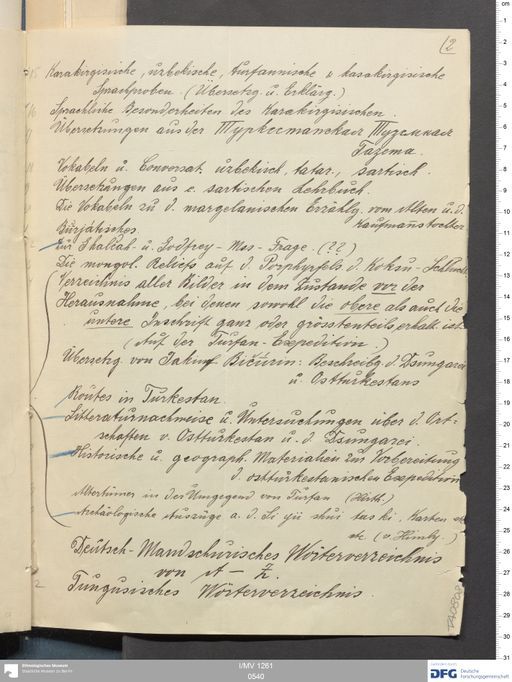 (2
Karakirgisische, uzbekische, turfannische & kasakirgisische
Sprachproben. (Übersetzg. u. Erklärg.)
Sprachliche Besonderheiten des Karakirgisischen.
Übersetzungen aus der Туркестанская Туземная
Газета.
Vokabeln u. Conversat. uzbekisch, tatar., sartisch.
Übersetzungen aus e. sartischen Lehrbuch.
Die Vokabeln zu d. margelanischen Erzählg. vom Alten u. d.
Kaufmannstochter
Burjätisches
Zur Shabeah- u. Godfrey-Mss-Frage. (??)
Die mongol. Reliefs auf d. Porphyrfels. d. Koksu-
Verzeichnis aller Bilder in dem Zustande vor der
Herausnahme, bei denen sowohl die obere als auch die
untere Inschrift ganz oder grösstenteils erhalt. ist.
(Auf der Turfan-Expedition.)
Übersetzg. von Iakinf Bičurin: Beschreibg. d. Dsungarei
u. Ostturkestans
Routes in Turkestan.
Litteraturnachweise u. Untersuchungen über d. Ort-
schaften v. Ostturkestan u. d. Dsungarei.
Historische u. geograph. Materialien zur Vorbereitung
d. ostturkestanischen Expedition
Altertümer in der Umgegend von Turfan
Archäologische Auszüge a. d. Si yü shui tao ki, Karten etc
etc (v. Himly.)
Deutsch-Mandschurisches Wörterverzeichnis
von A - Z.
Tungusisches Wörterverzeichnis.
Ethnologisches Museum
Staatliche Museen zu Berlin
I/MV 1261
0540
DFG Deutsche
Forschungsgemeinschaft